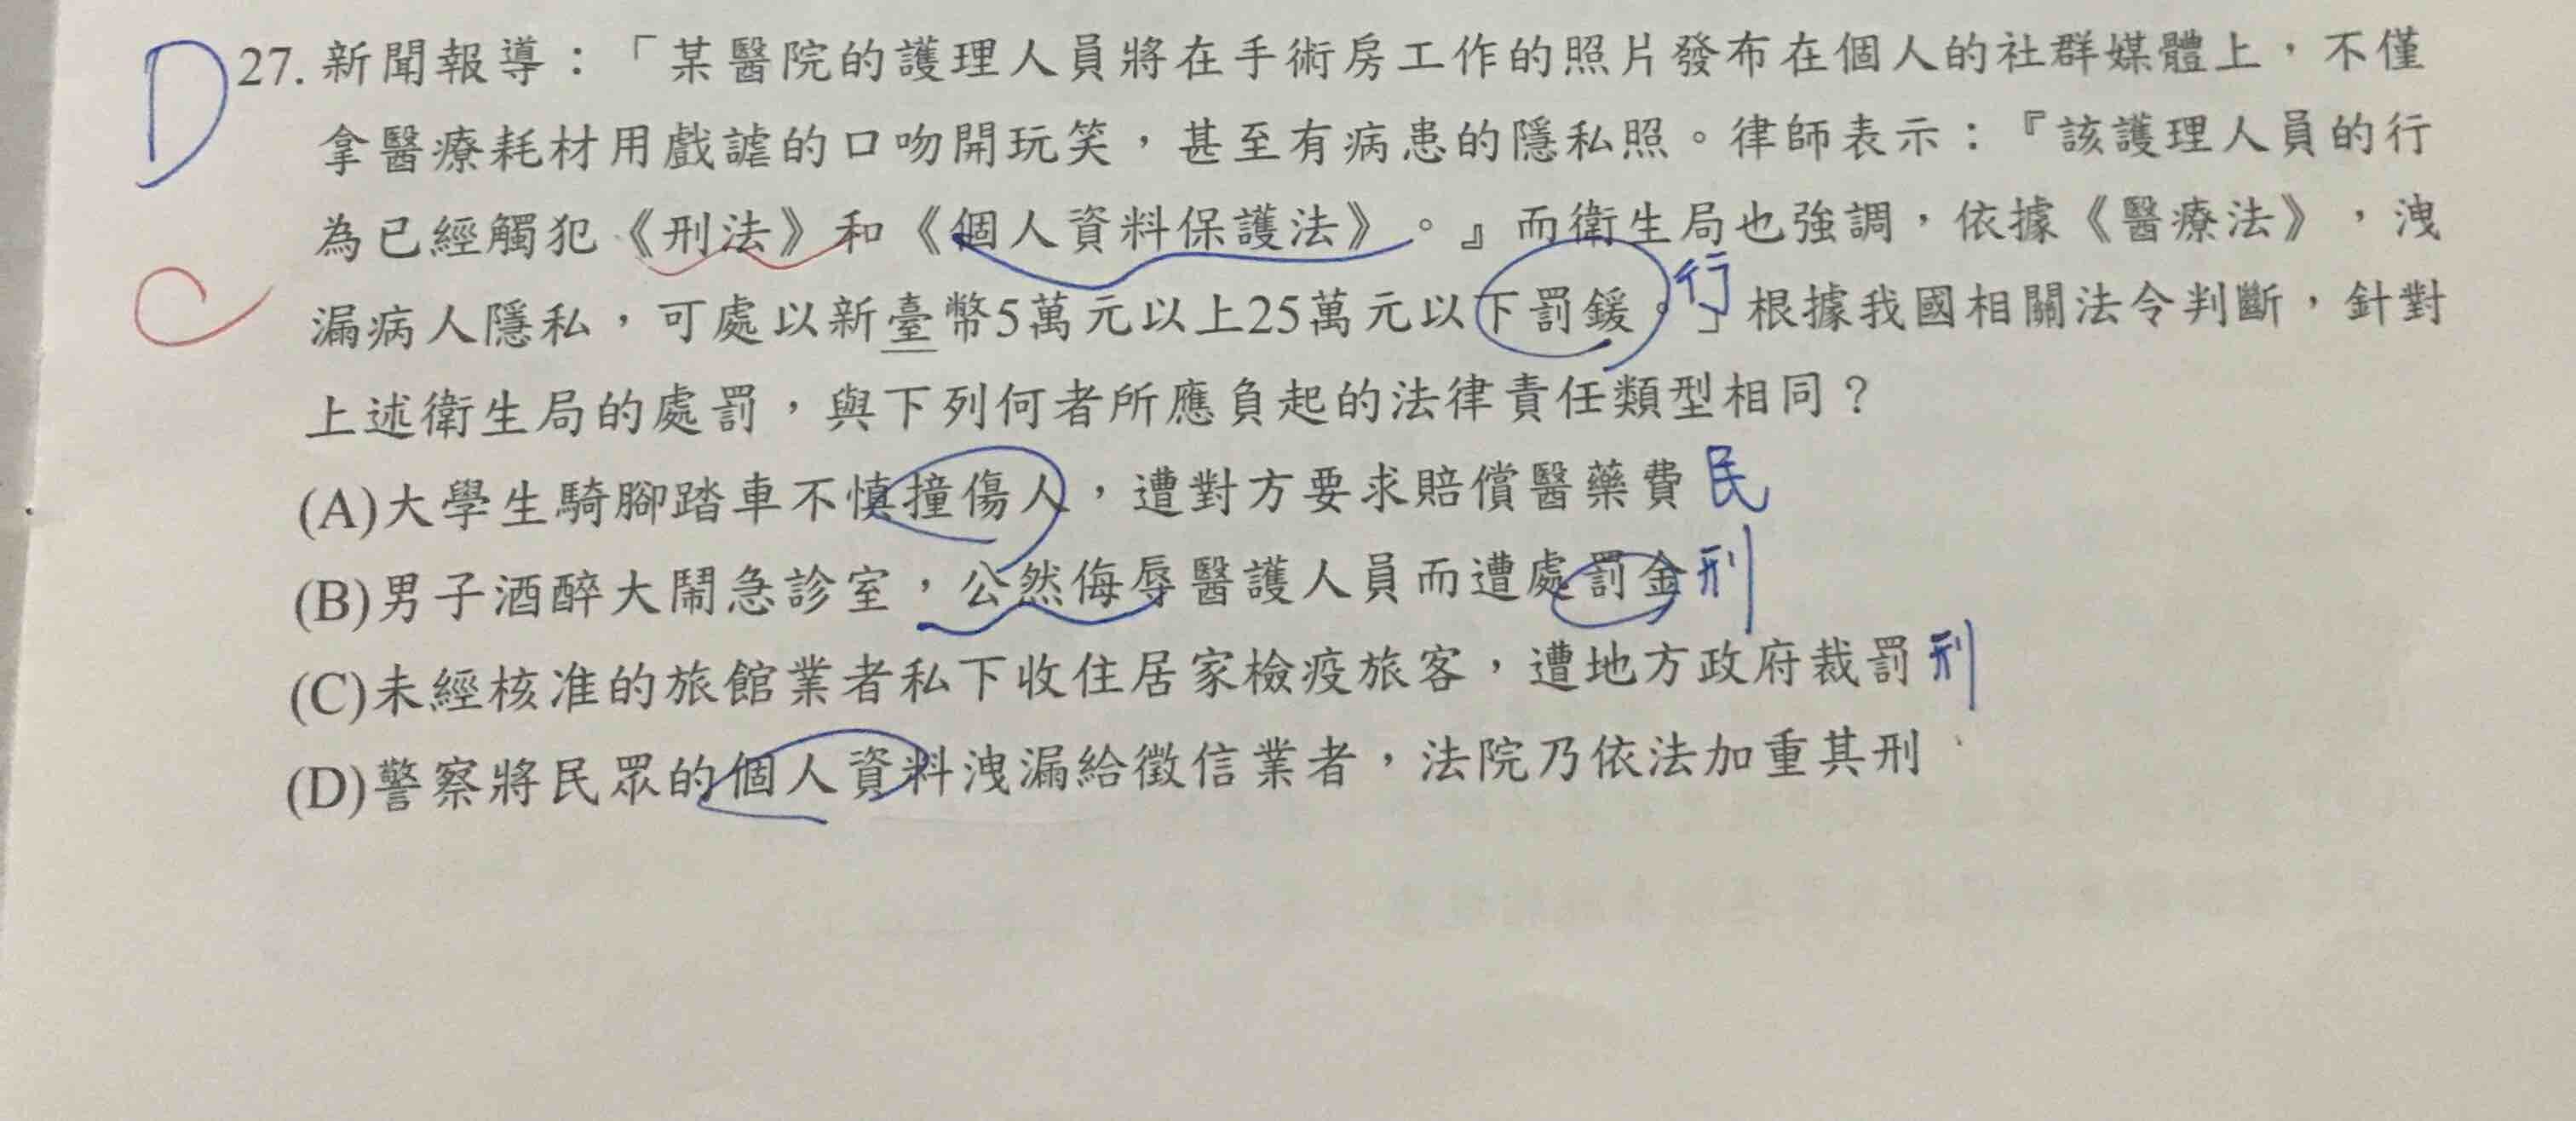 D 27. 新聞報導：「某醫院的護理人員將在手術房工作的照片發布在個人的社群媒體上，不僅
拿醫療耗材用戲謔的口吻開玩笑，甚至有病患的隱私照。律師表示：『該護理人員的行
為已經觸犯《刑法》和《個人資料保護法》。』而衛生局也強調，依據《醫療法》，洩
C 漏病人隱私，可處以新臺幣5萬元以上25萬元以下罰鍰。」行 根據我國相關法令判斷，針對
上述衛生局的處罰，與下列何者所應負起的法律責任類型相同？
(A)大學生騎腳踏車不慎撞傷人，遭對方要求賠償醫藥費 民
(B)男子酒醉大鬧急診室，公然侮辱醫護人員而遭處罰金 刑
(C)未經核准的旅館業者私下收住居家檢疫旅客，遭地方政府裁罰 刑
(D)警察將民眾的個人資料洩漏給徵信業者，法院乃依法加重其刑